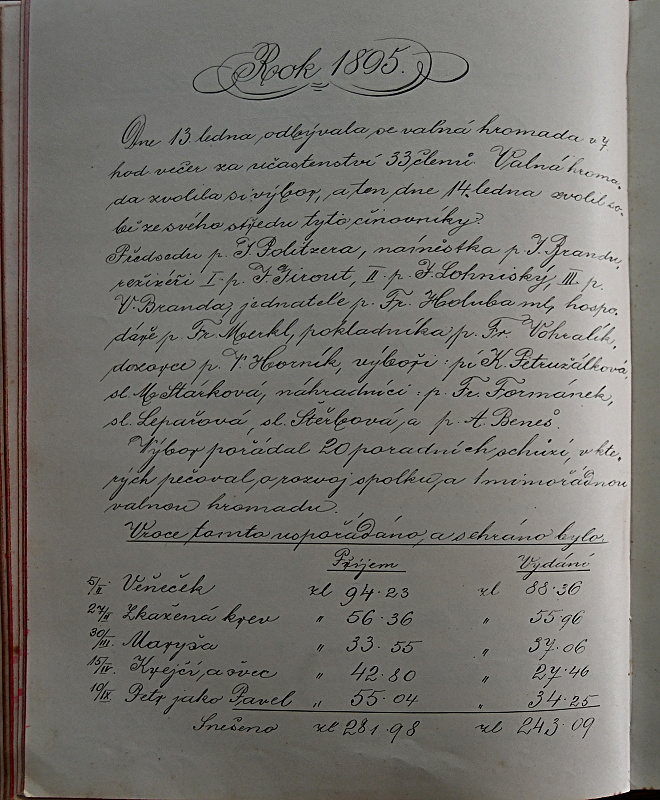 Rok 1895.
Dne 13. ledna odbývala se valná hromada v 7
hod večer za účastenství 33 členů. Valná hroma-
da zvolila si výbor, a ten dne 14. ledna zvolil so-
bě ze svého středu tyto činovníky:
Předsedu p. J. Politzera, náměstka p. J. Brandu,
režiséři I. p. J. Jirout, II. p. J. Lohniský, III. p.
V. Branda, jednatele p. Fr. Holuba ml., hospo-
dáře p. Fr. Merkl, pokladníka p. Fr. Vohralík,
dozorce p. V. Horník, výboři: pí K. Petružálková,
sl. M. Stárková, náhradníci: p. Fr. Formánek,
sl. Lepařová, sl. Štěrbová a p. A. Beneš.
Výbor pořádal 20 poradních schůzí, v kte-
rých pečoval o rozvoj spolku, a 1 mimořádnou
valnou hromadu.
V roce tomto uspořádáno a sehráno bylo
Příjem Vydání
5/II. Věneček zl 94·23 zl 88·36
27/II Zkažená krev " 56·36 " 55·96
30/III. Maryša " 33·55 " 37·06
15/IV. Krejčí a švec " 42·80 " 27·46
10/IX. Petr jako Pavel " 55·04 " 34·25
Snešeno zl 281·98 zl 243·09